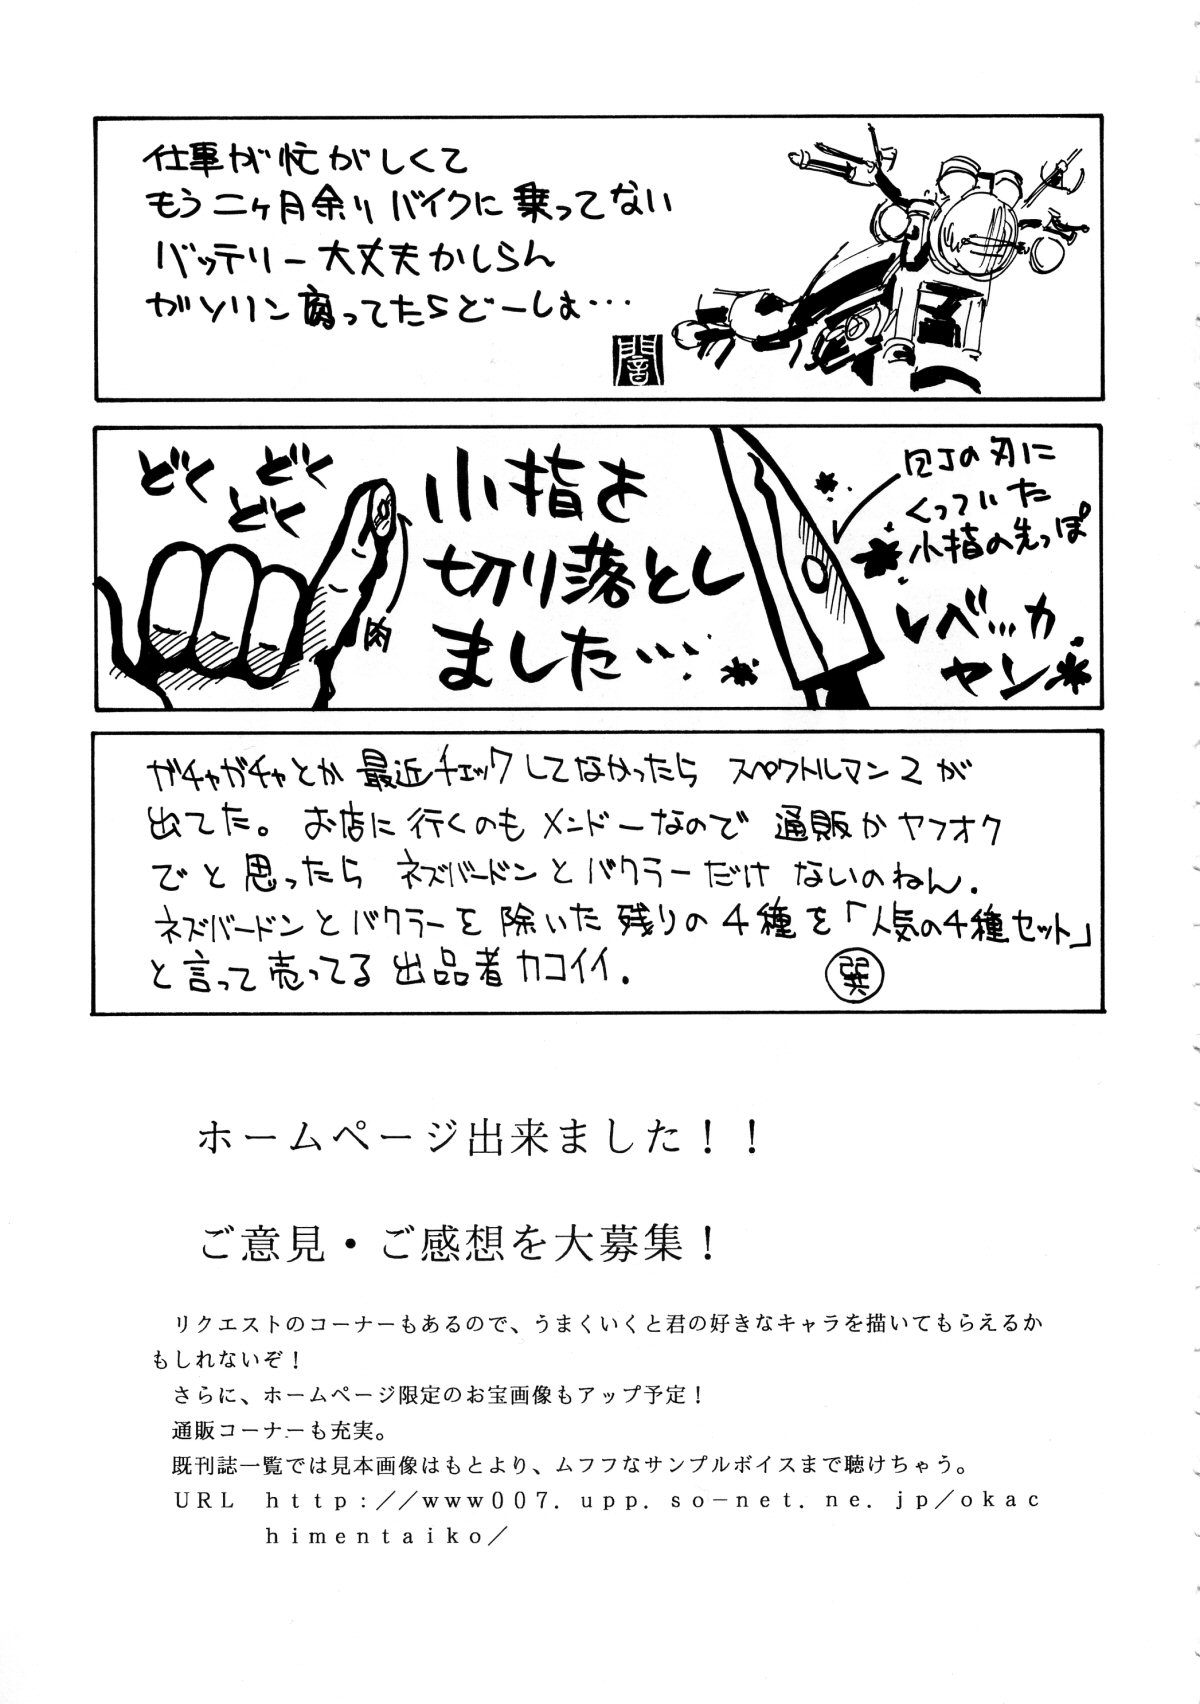 仕事が忙がしくて
もう二ヶ月余りバイクに乗ってない
バッテリー大丈夫かしらん
ガソリン腐ってたらどーしよ…
闇
どくどくどく
小指を
切り落とし
ました…
肉
包丁の刃に
くっついた
小指の先っぽ
レベッカ
ヤン
ガチャガチャとか最近チェックしてなかったらスペクトルマン2が
出てた。お店に行くのもメンドーなので通販かヤフオク
でと思ったらネズバードンとバクラーだけないのねん.
ネズバードンとバクラーを除いた残りの4種を「人気の4種セット」
と言って売ってる出品者カコイイ.
巽
ホームページ出来ました！！
ご意見・ご感想を大募集！
リクエストのコーナーもあるので、うまくいくと君の好きなキャラを描いてもらえるか
もしれないぞ！
さらに、ホームページ限定のお宝画像もアップ予定！
通販コーナーも充実。
既刊誌一覧では見本画像はもとより、ムフフなサンプルボイスまで聴けちゃう。
ＵＲＬ　ｈｔｔｐ：／／ｗｗｗ００７．ｕｐｐ．ｓｏ－ｎｅｔ．ｎｅ．ｊｐ／ｏｋａｃ
ｈｉｍｅｎｔａｉｋｏ／